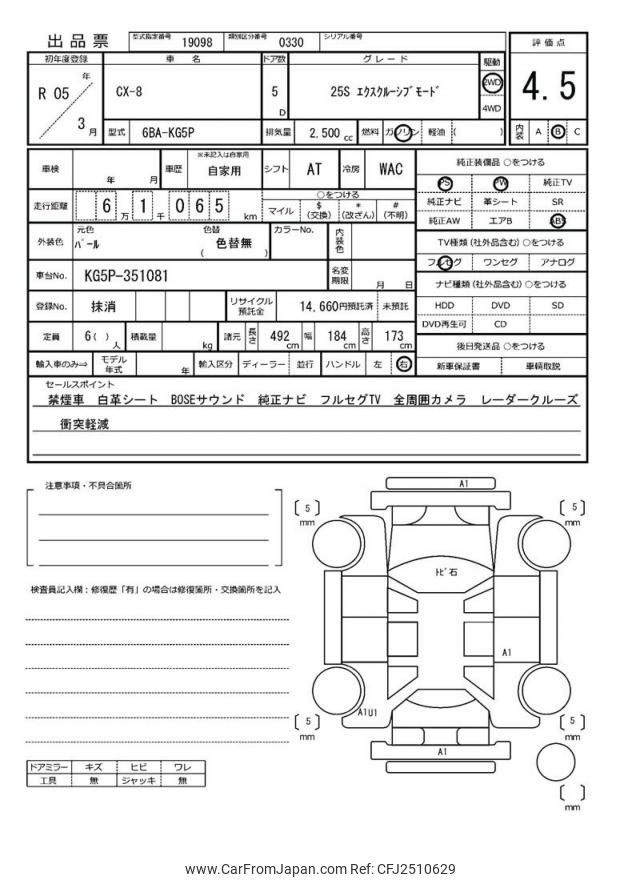 出品票 型式指定番号 19098 類別区分番号 0330 シリアル番号
初年度登録 車 名 ドア数 グレード 駆動 評価点
R 05 年 3 月 CX-8 5 D 25S エクスクルーシブモード 2WD 4WD 4.5
型式 6BA-KG5P 排気量 2,500 cc 燃料 ガソリン 軽油 ( ) 内装 A B C
車検 年 月 車歴 ※未記入は自家用 自家用 シフト AT 冷房 WAC 純正装備品 ○をつける
PS PW 純正TV
走行距離 6 万 1 千 0 6 5 km ○をつける
マイル $ (交換) * (改ざん) # (不明)
純正ナビ 革シート SR
純正AW エアB ABS
外装色 元色 パール 色替 ( 色替無 ) カラーNo. 内装色
TV種類 (社外品含む) ○をつける
フルセグ ワンセグ アナログ
車台No. KG5P-351081 名変期限 月 日
ナビ種類 (社外品含む) ○をつける
登録No. 抹消 リサイクル預託金 14,660円預託済 未預託
HDD DVD SD
DVD再生可 CD
定員 6( ) 人 積載量 kg 諸元 長さ 492 cm 幅 184 cm 高さ 173 cm
後日発送品 ○をつける
輸入車のみ⇒ モデル年式 年 輸入区分 ディーラー 並行 ハンドル 左 右 新車保証書 車輌取説
セールスポイント
禁煙車 白革シート BOSEサウンド 純正ナビ フルセグTV 全周囲カメラ レーダークルーズ
衝突軽減
注意事項・不具合箇所
検査員記入欄:修復歴「有」の場合は修復箇所・交換箇所を記入
A1
A1
[ 5 ] mm
[ 5 ] mm
トビ石
A1
A1U1
[ 5 ] mm
[ 5 ] mm
A1
[ ] mm
ドアミラー キズ ヒビ ワレ
工具 無 ジャッキ 無
www.CarFromJapan.com Ref: CFJ2510629